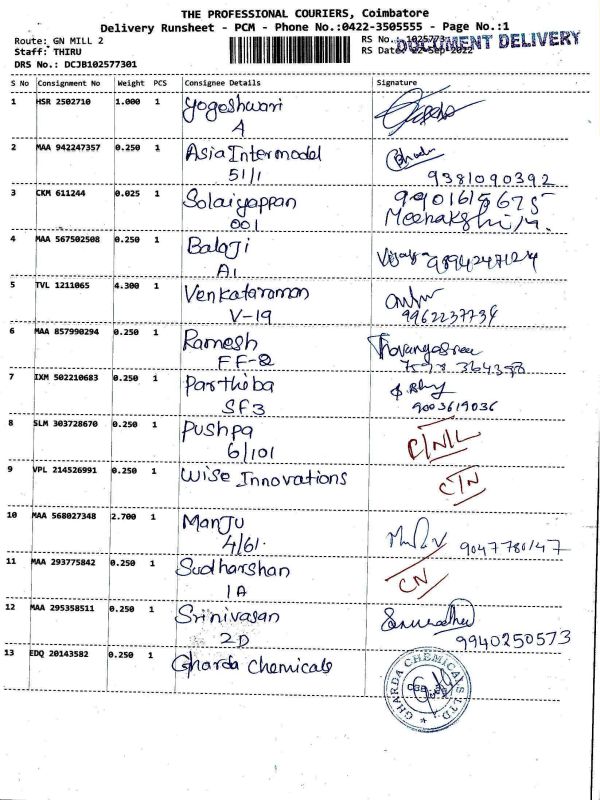 THE PROFESSIONAL COURIERS, Coimbatore
Delivery Runsheet - PCM - Phone No.:0422-3505555 - Page No.:1
Route: GN MILL 2
RS No.: 1025773
DOCUMENT DELIVERY
Staff: THIRU
RS Date: 22-Sep-2022
DRS No.: DCJB102577301
S No Consignment No Weight PCS Consignee Details Signature
1 HSR 2502710 1.000 1 Yogeshwari
A
2 MAA 942247357 0.250 1 Asia Intermodal
51/1 9381090392
3 CKM 611244 0.025 1 Solaiyappan 9901615675
001 Meenakshi
4 MAA 567502508 0.250 1 Balaji
A1
5 TVL 1211065 4.300 1 Venkataraman
V-19 9962237734
6 MAA 857990294 0.250 1 Ramesh
FF-8
7 IXM 502210683 0.250 1 Parthiba
SF3 9003619036
8 SLM 303728670 0.250 1 Pushpa C/N/L
6/101
9 VPL 214526991 0.250 1 Wise Innovations C/N
10 MAA 568027348 2.700 1 Manju
4/61 9047780147
11 MAA 293775842 0.250 1 Sudharshan CN
1A
12 MAA 295358511 0.250 1 Srinivasan
2D 9940250573
13 EDQ 20143582 0.250 1 Gharda Chemicals
GHARDA CHEMICALS LTD. CBE